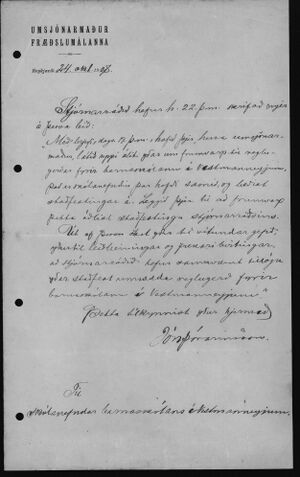 UMSJÓNARMAÐUR
FRÆÐSLUMÁLANNA
Reykjavík 24. okt. 1908.
Stjórnarráðið hefur h. 22. þ.m. skrifað mjer
á þessa leið:
Með brjefi, dags. 17. þ.m. hafið þjer, herra umsjónar-
maður, látið uppi álit yðar um frumvarp til reglu-
gerðar fyrir barnaskólann í Vestmannaeyjum,
það er skólanefndin þar hafði samið, og beðist
staðfestingar á. Leggið þjer til að frumvarp
þetta öðlist staðfestingu stjórnarráðsins.
Út af þessu skal yður til vitundar gefið,
yður til leiðbeiningar og frekari birtingar,
að stjórnarráðið hefur samkvæmt tillögu
yðar staðfest umrædda reglugerð fyrir
barnaskólann í Vestmannaeyjum"
Þetta tilkynnist yður hjer með
Jón Þórarinsson.
Til
skólanefndar barnaskólans í Vestmannaeyjum.